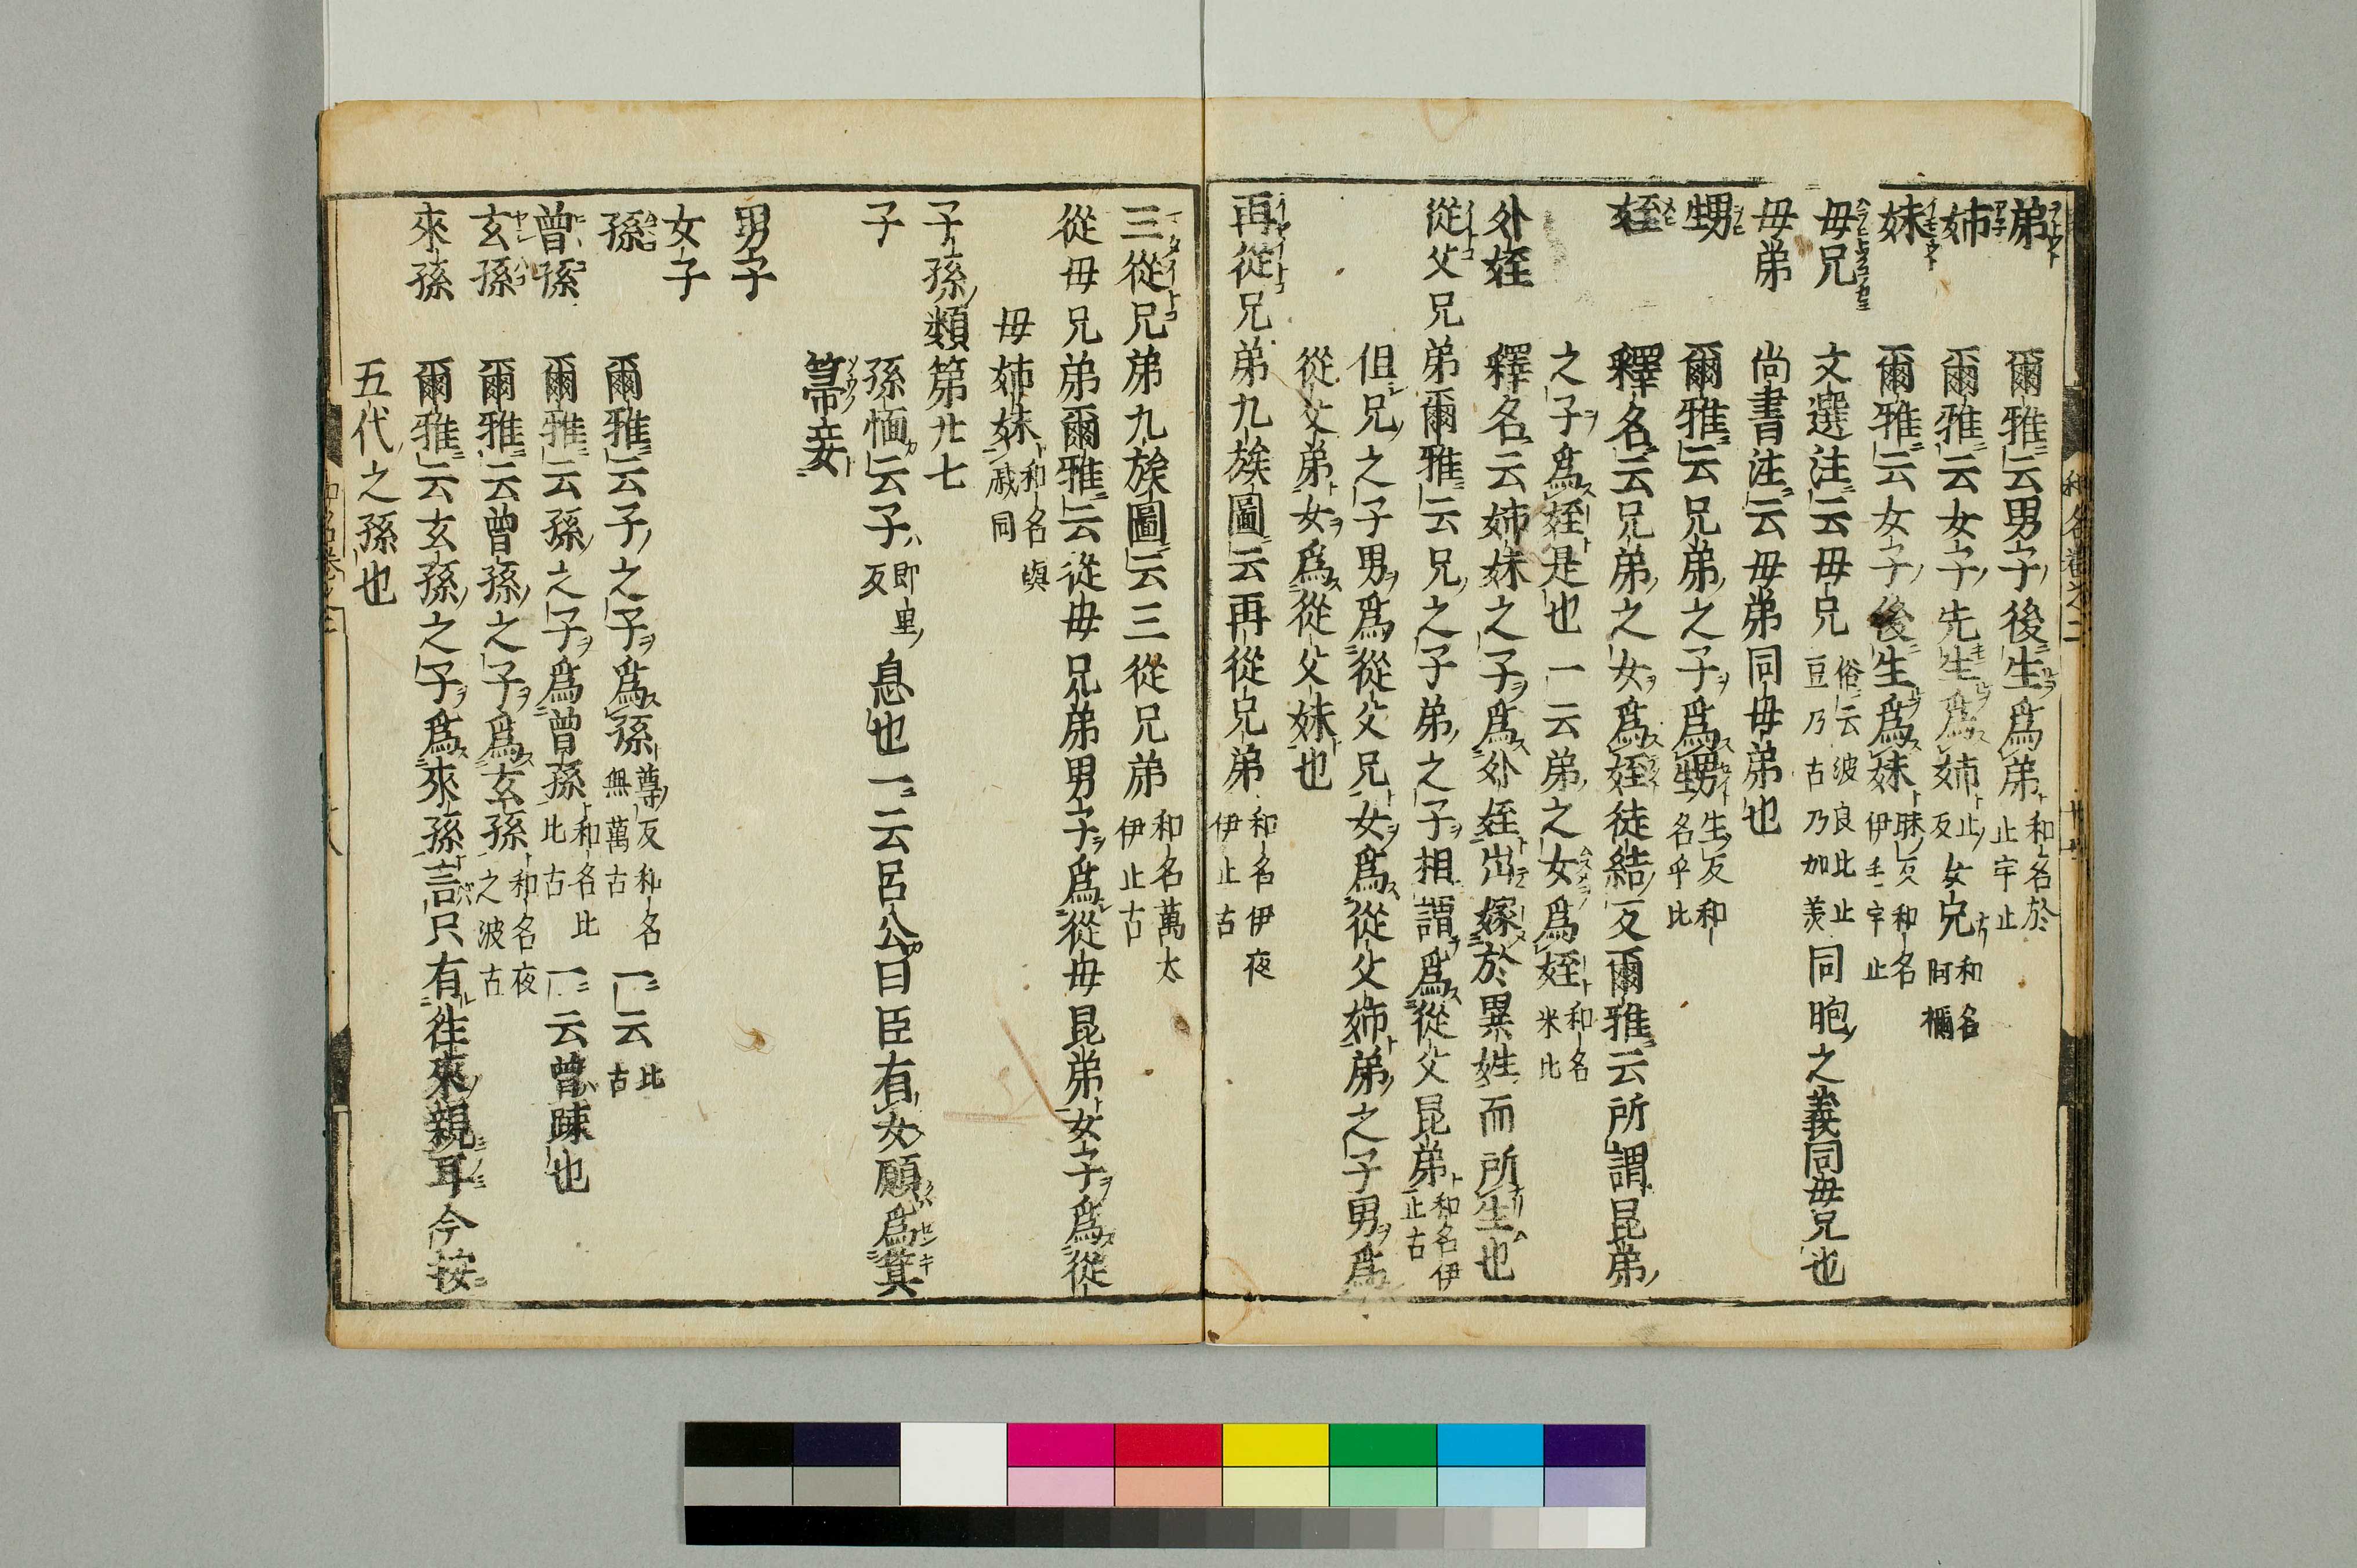 弟 爾雅云男子後生爲弟 和名於止宇止
姉 爾雅云女子先生爲姉 止反 女兄 和名阿禰
妹 爾雅云女子後生爲妹 昧反和名伊毛宇止
母兄 文選注云母兄 俗云波良比止豆乃古乃加美 同胞之義同母兄也
母弟 尚書注云母弟同母弟也
甥 爾雅云兄弟之子爲甥 生反和名乎比
姪 釋名云兄弟之女爲姪徒結反爾雅云所謂昆弟
之子爲姪是也一云弟之女爲姪 和名米比
外姪 釋名云姉妹之子爲外姪出嫁於異姓而所生也
從父兄弟爾雅云兄之子弟之子相謂爲從父昆弟 和名伊止古
但兄之子男爲從父兄女爲從父姉弟之子男爲
從父弟女爲從父妹也
再從兄弟九族圖云再從兄弟 和名伊夜伊止古
三從兄弟九族圖云三從兄弟 和名萬太伊止古
從母兄弟爾雅云從母兄弟男子爲從母昆弟女子爲從
母姉妹 和名與戚同
子孫類第廿七
子 孫愐云子 即里反 息也一云呂公曰臣有女願爲箕
箒妾
男子
女子
孫 爾雅云子之子爲孫 尊反和名無萬古 一云 比古
曾孫 爾雅云孫之子爲曾孫 和名比比古 一云曾疎也
玄孫 爾雅云曾孫之子爲玄孫 和名夜之波古
來孫 爾雅云玄孫之子爲來孫言只有往來親耳今按
五代之孫也